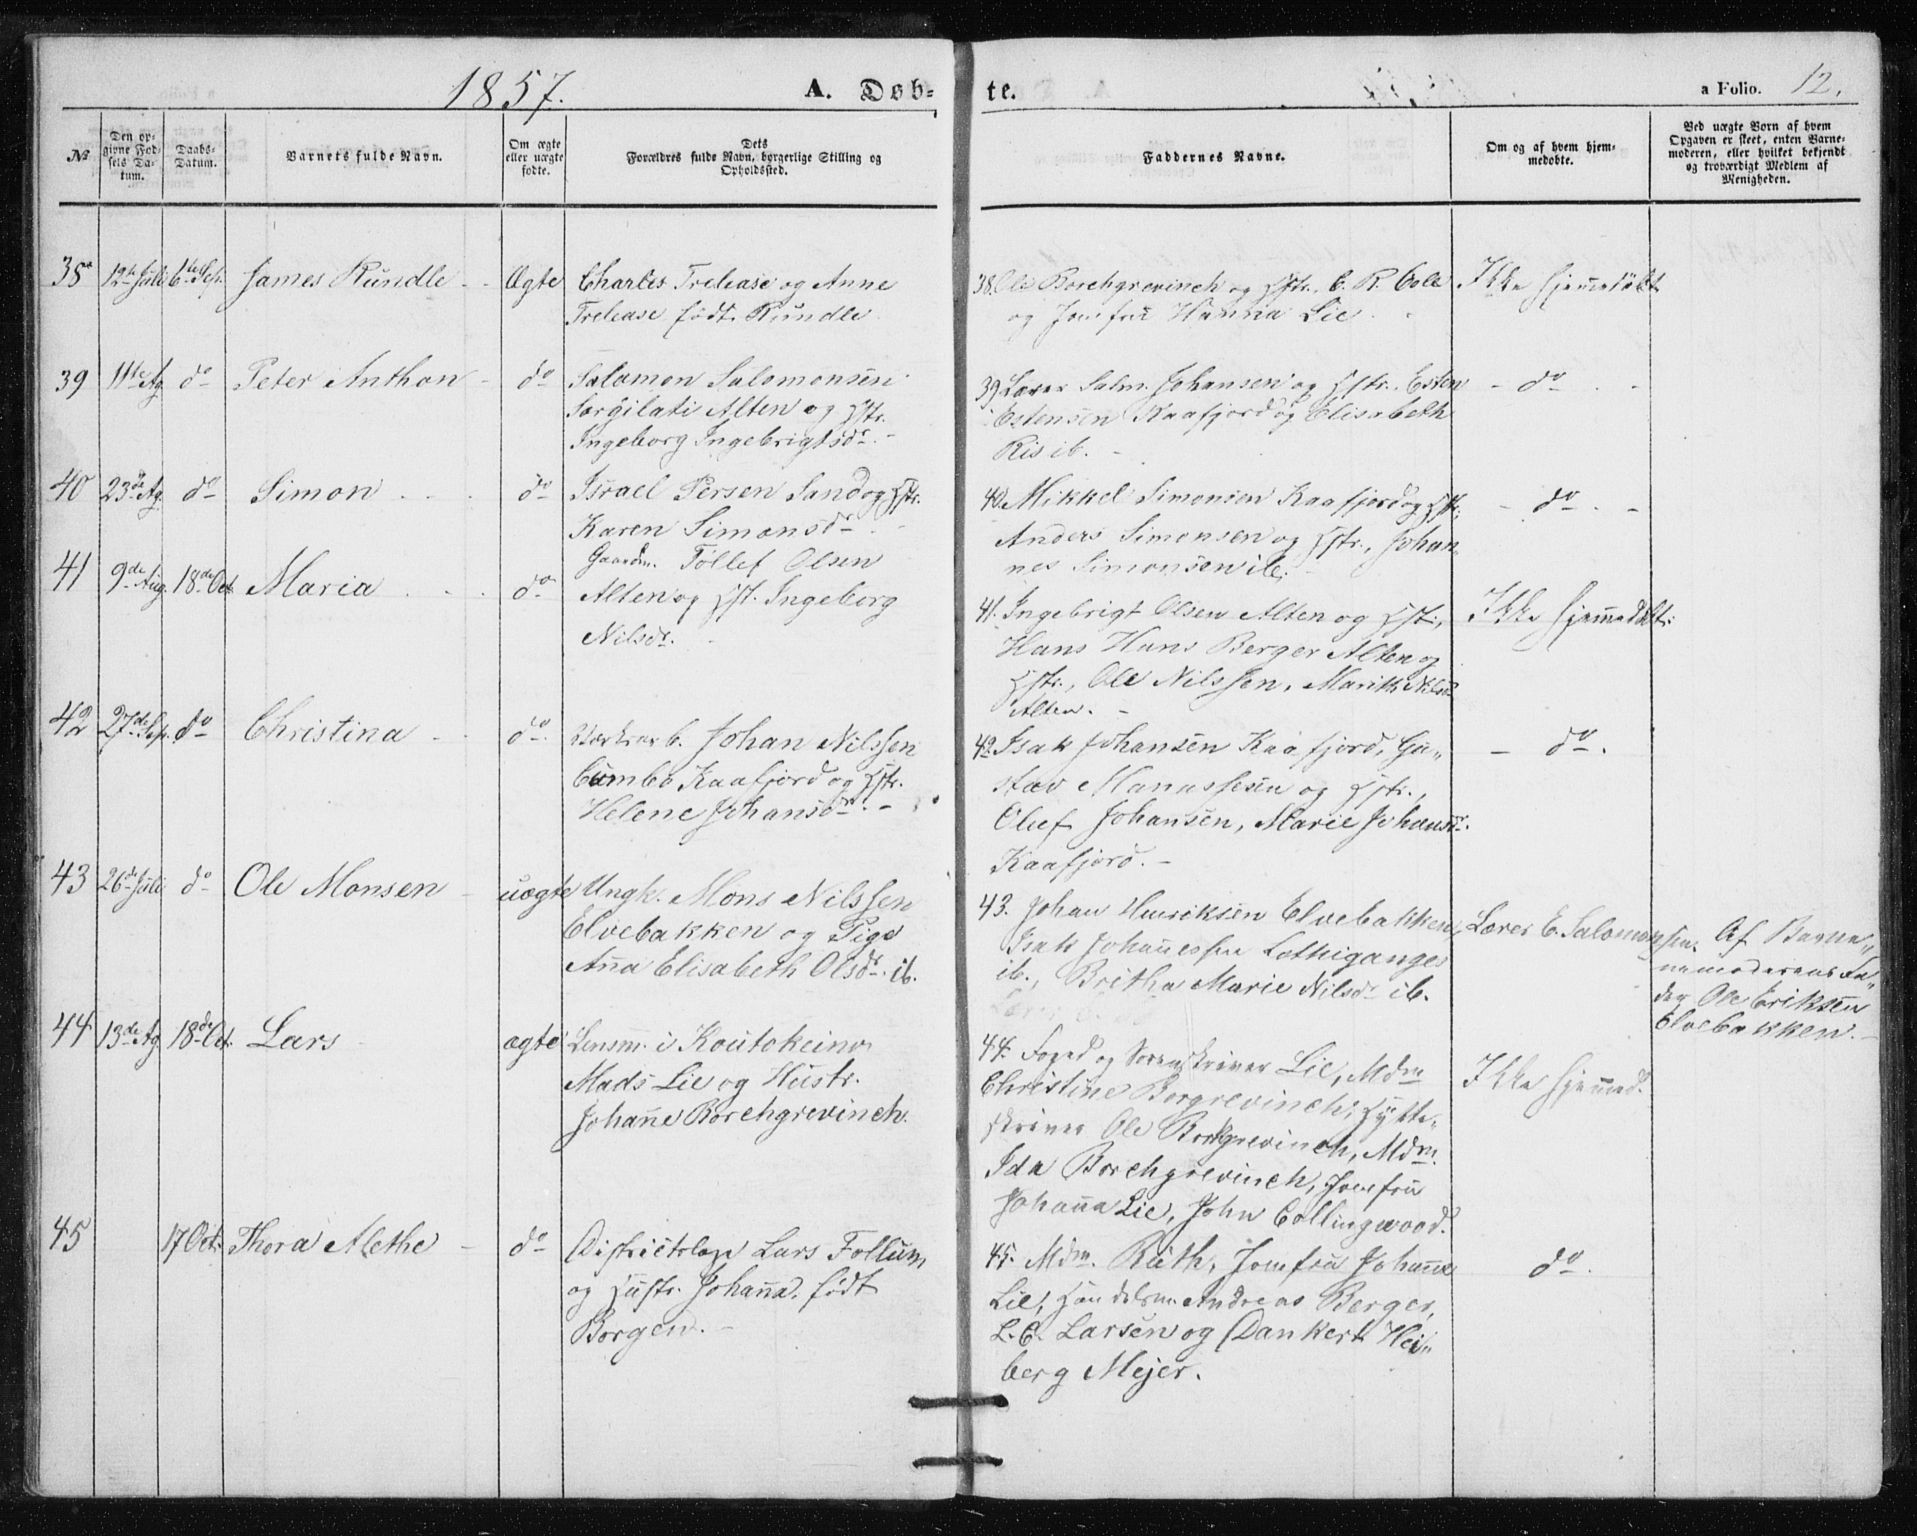 1857.
A. Døb-
te.
a Folio. 12.
№
Den op-
givne Fød-
sels Da-
tum.
Daabs-
Datum.
Barnets fulde Navn.
Om ægte
eller uægte
fødte.
Dets
Forældres fulde Navn, borgerlige Stilling og
Opholdssted.
Faddernes Navne.
Om og af hvem hjem-
medøbte.
Ved uægte Børn af hvem
Opgaven er skeet, enten Barne-
moderen, eller hvilket bekjendt
og troværdigt Medlem af
Menigheden.
38 12te Juli 6te Sep. James Rundle - - Ægte Charles Trelease og Anne
Trelease født Rundle
38. Ole Borchgrevinch og Hstr. C. R. Cole
og Jomfru Hanna Lie.
Ikke hjemmedøbt
39 11te Ag. do Peter Anthon - do Salomon Salomonsen
Alten og Hstr.
Ingeborg Ingebrigtsdr. -
39. Lærer Salm. Johansen og Hstr. Esten
Estensen Kaafjord og Elisabeth
Ris ib. -
- do - -
40 23de Ag. do Simon do Israel Persen Sand og Hstr.
Karen Simonsdr -
40. Mikkel Simonsen Kaafjord og Hstr.
Anders Simonsen og Hstr., Johan-
nes Simonsen ib. -
- do - -
41 9de Aug. 18de Oct. Maria do Gaardm. Tollef Olsen
Alten og Hst. Ingeborg
Nilsdr. -
41. Ingebrigt Olsen Alten og Hstr.,
Hans Hans Berger Alten og
Hstr., Ole Nilssen, Marith Nilsd
Alten. -
Ikke hjemmedøbt.
42 27de Sep. do Christina - do Værksarb. Johan Nilssen
Cumbo Kaafjord og Hstr.
Helene Johansdr. -
42. Isak Johansen Kaafjord, Gu-
stav Manassesen og Hstr.,
Oluf Johansen, Marie Johansdr.
Kaafjord. -
- do.
43 26de Juli do Ole Monsen - uægte Ungk. Mons Nilssen
Elvebakken og Pige
Anna Elisabeth Olsdr. ib.
43. Johan Henriksen Elvebakken,
Isak Johannessen
ib., Britha Marie Nilsdr ib.
Lærer E. Salomonsen.
Af Barne-
nemoderens Fa-
der Ole Eriksen
Elvebakken. -
44 13de Ag 18de Oct. Lars ægte Lensm. i Koutokeino
Mads Lie og Hustr.
Johanne Borchgrevinch.
44. Foged og Sorenskriver Lie, Mdm
Christine Borgrevinch, Hytte-
skriver Ole Borchgrevinch, Mdm.
Ida Borchgrevinch, Jomfru
Johanna Lie, John Collingwood.
Ikke hjemmed.
45 17 Oct. Thora Alethe - do Districtslæge Lars Follum
og Hustr. Johanna, født
Borgen. -
45. Mdm. Ruth, Jomfru Johanne
Lie, Handelsm. Andreas Berger,
L. C. Larsen og Dankert Hei-
berg Mejer.
do.